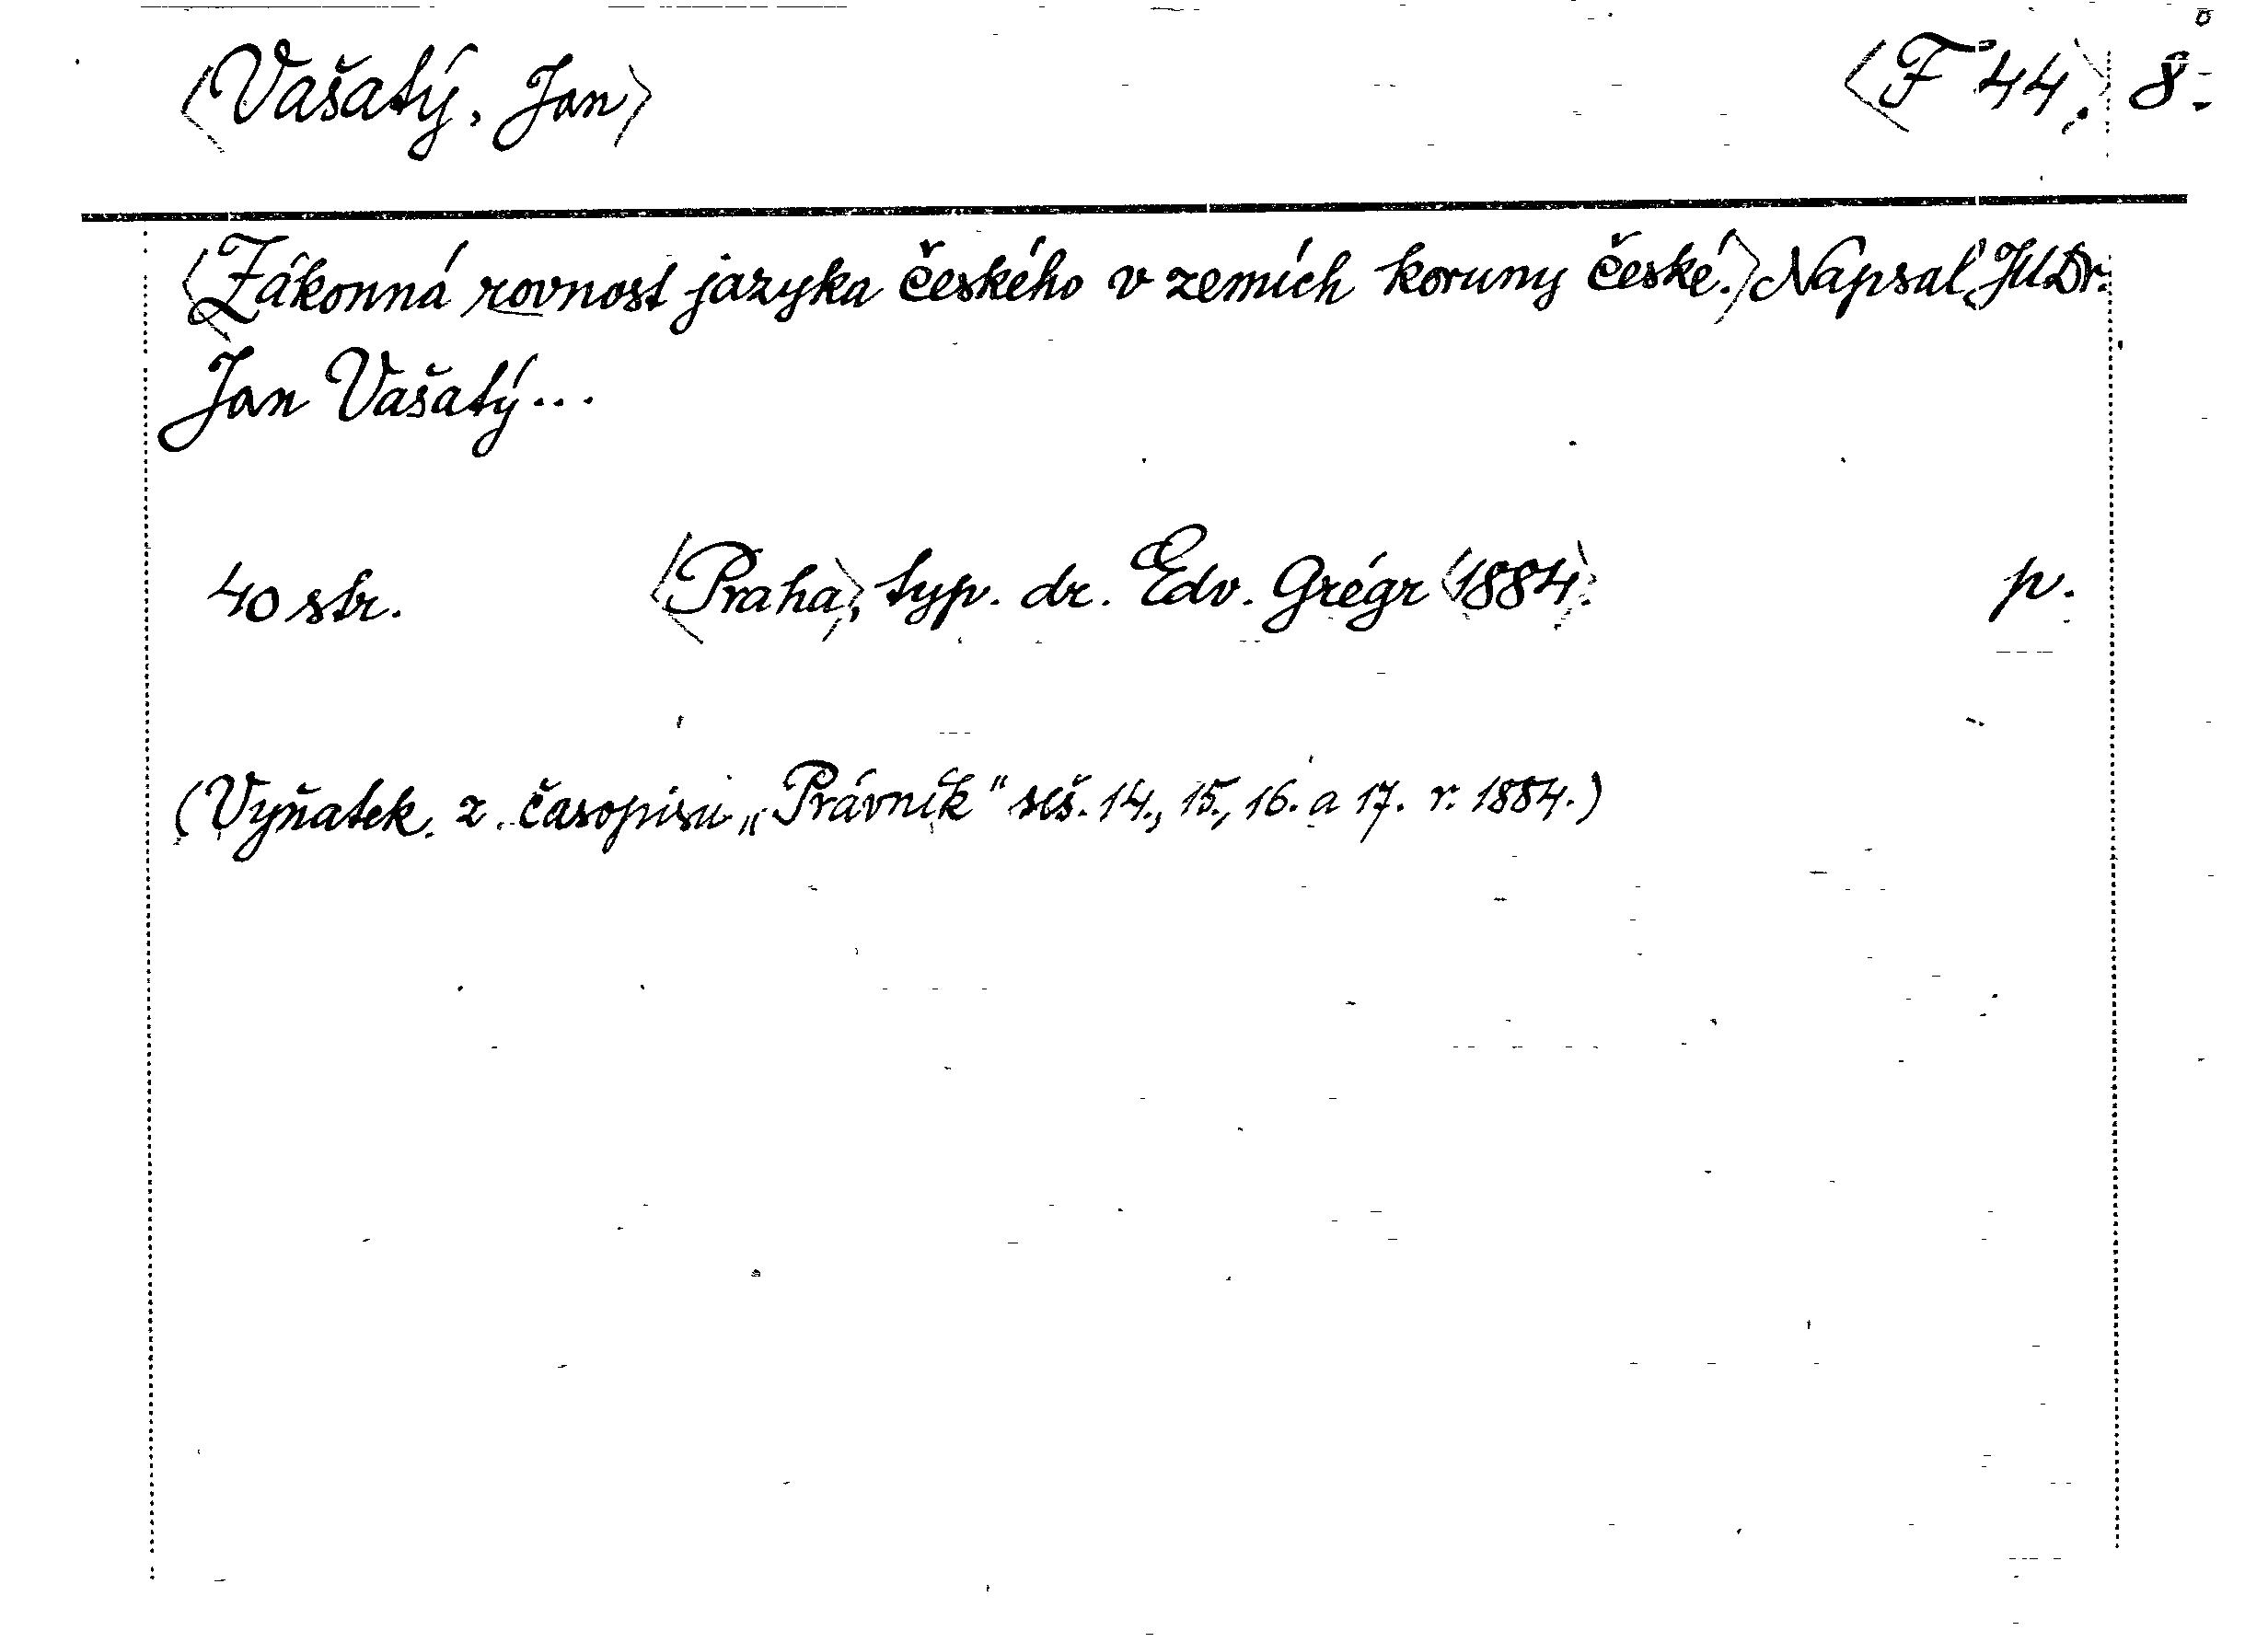 ⟨Vašatý, Jan⟩ ⟨F 44.⟩ 8°.
⟨Zákonná rovnost jazyka českého v zemích koruny české.⟩ Napsal JUDr.
Jan Vašatý...
40 str. ⟨Praha⟩, typ. dr. Edv. Grégr ⟨1884⟩. p.
(Vyňatek z časopisu „Právník“ seš. 14., 15., 16. a 17. r. 1884.)